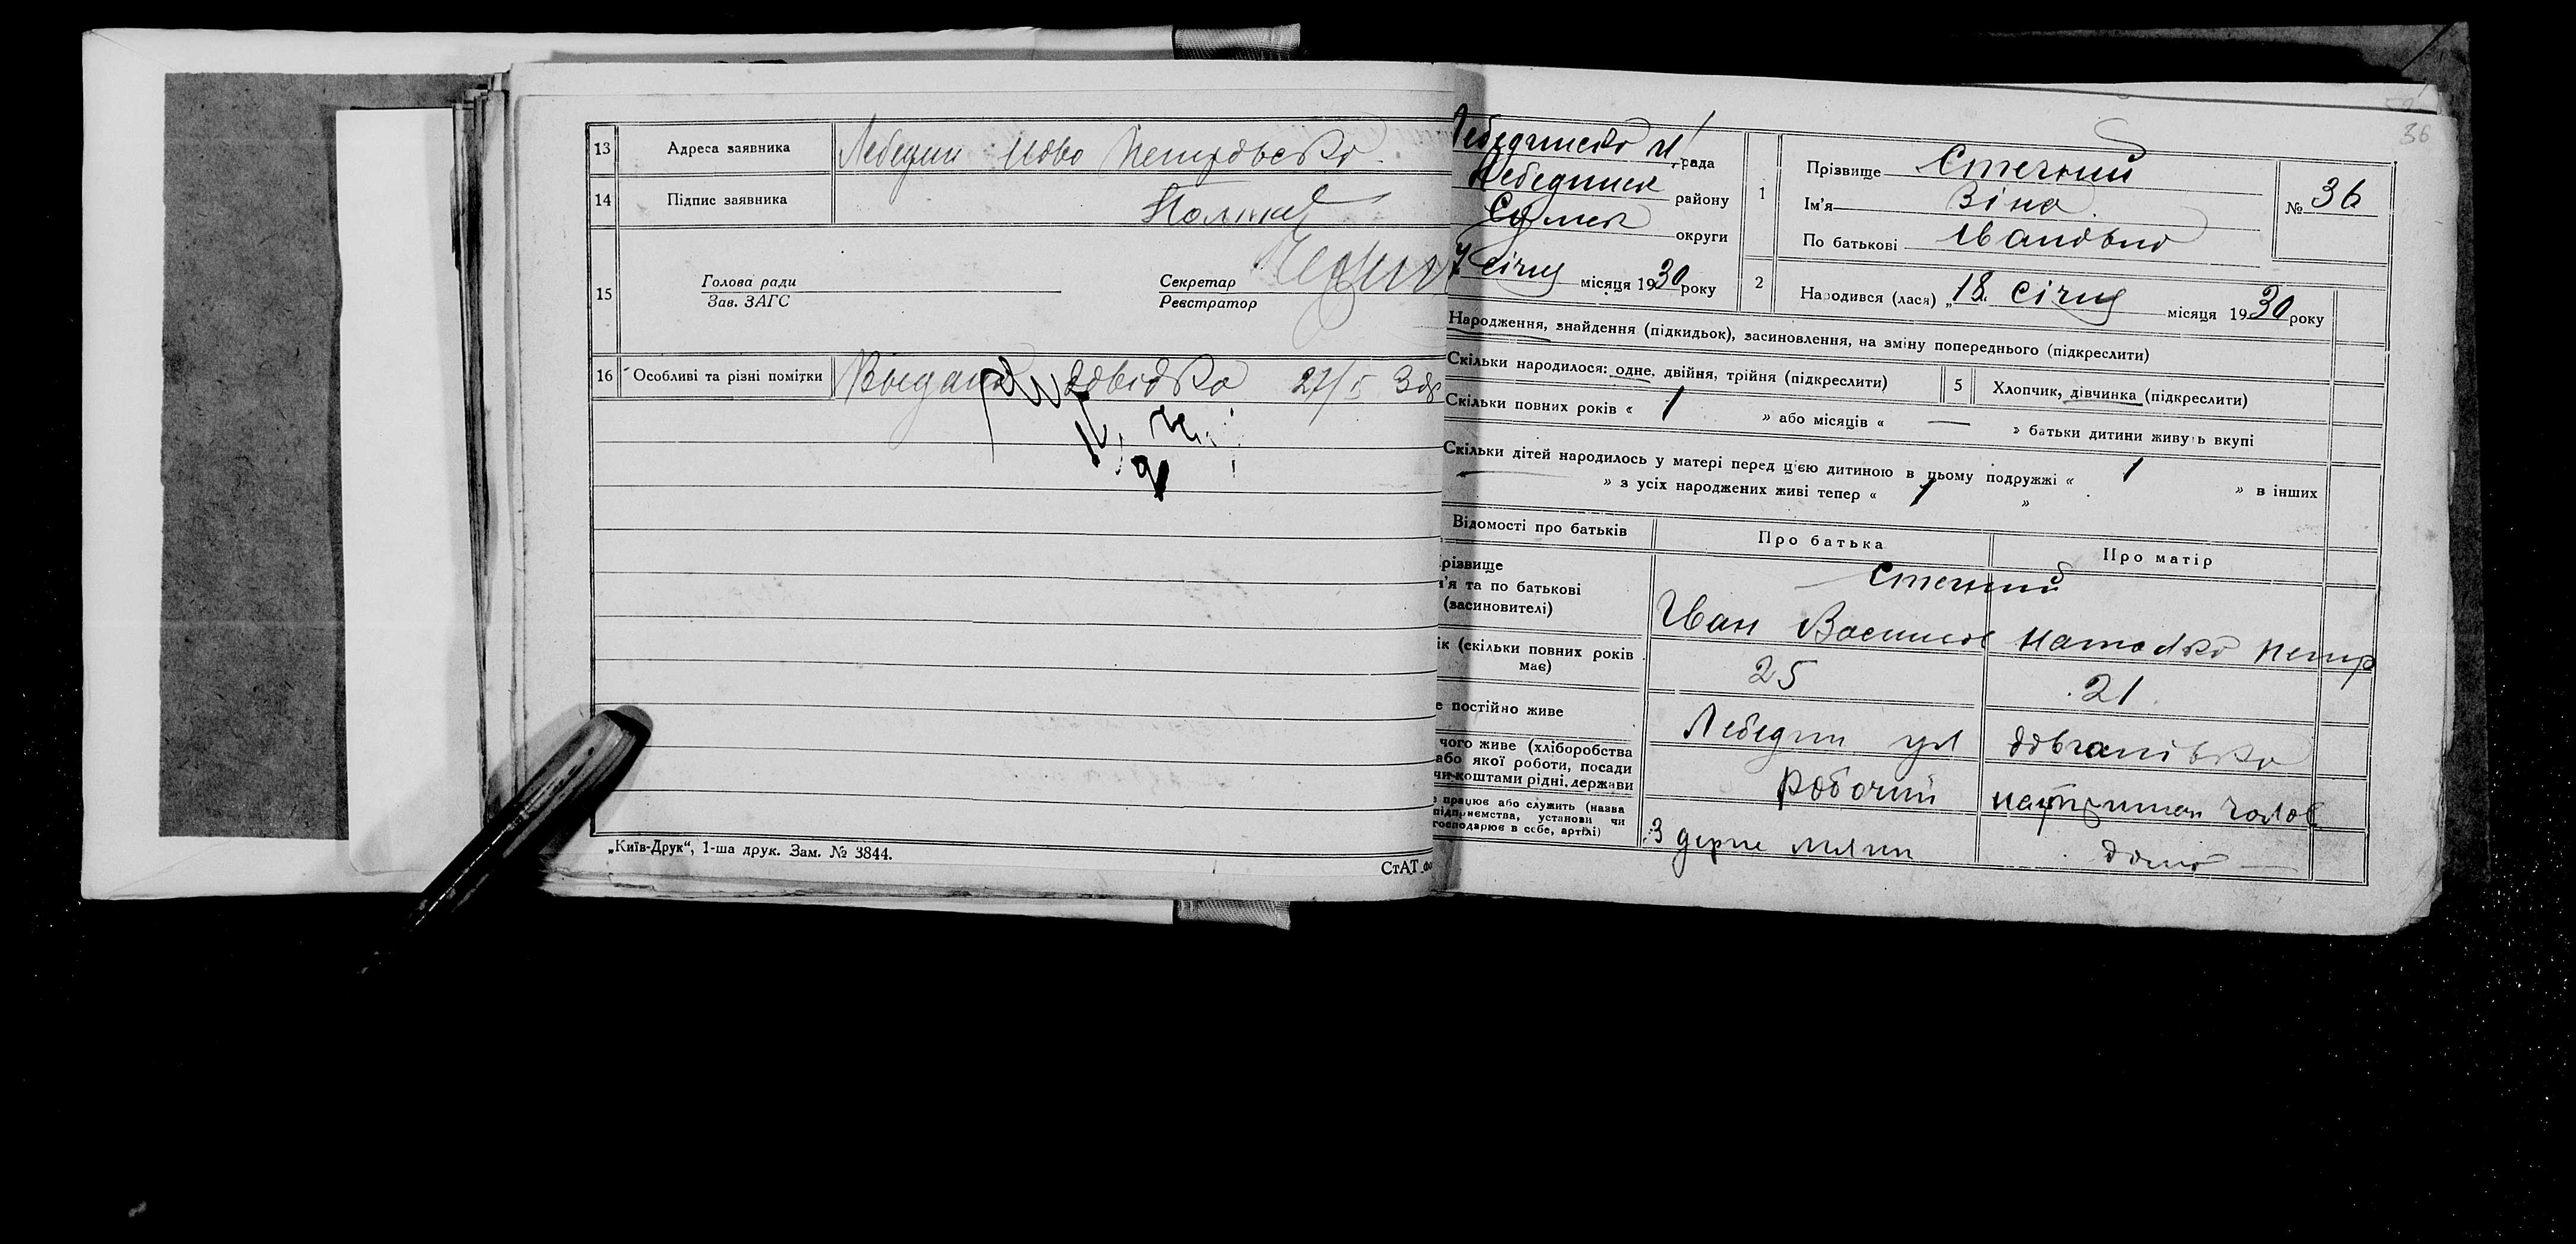 13 Адреса заявника Лебедин Ново Петровська
14 Підпис заявника
15 Голова ради
Зав. ЗАГС
Секретар
Реєстратор
16 Особливі та різні помітки Выдана довідка 27/5 30р
„Київ-Друк“, 1-ша друк. Зам. № 3844.
СтАТ
36
Лебединска м. рада
Лебединск району
Сумск округи
січня місяця 1930 року
1 Прізвище Стечний
Ім'я Зіна
По батькові Івановна
№ 36
2 Народився (лася) „18“ січня місяця 1930 року
Народження, знайдення (підкидьок), засиновлення, на зміну попереднього (підкреслити)
Скільки народилося: одне, двійня, трійня (підкреслити)
5 Хлопчик, дівчинка (підкреслити)
Скільки повних років « 1 » або місяців « — » батьки дитини живуть вкупі
Скільки дітей народилось у матері перед цією дитиною в цьому подружжі « 1 » в інших
— » з усіх народжених живі тепер « 1 »
Відомості про батьків Про батька Про матір
різвище
м'я та по батькові
(засиновителі)
Стечний
Іван Васильов Наталка Петр
ік (скільки повних років має) 25 21
е постійно живе Лебедин ул Довганівка
чого живе (хліборобства
або якої роботи, посади
чи коштами рідні, держави
робочий
е працює або служить (назва
підприємства, установи чи
господарює в себе, артілі)
3 держ млин дома